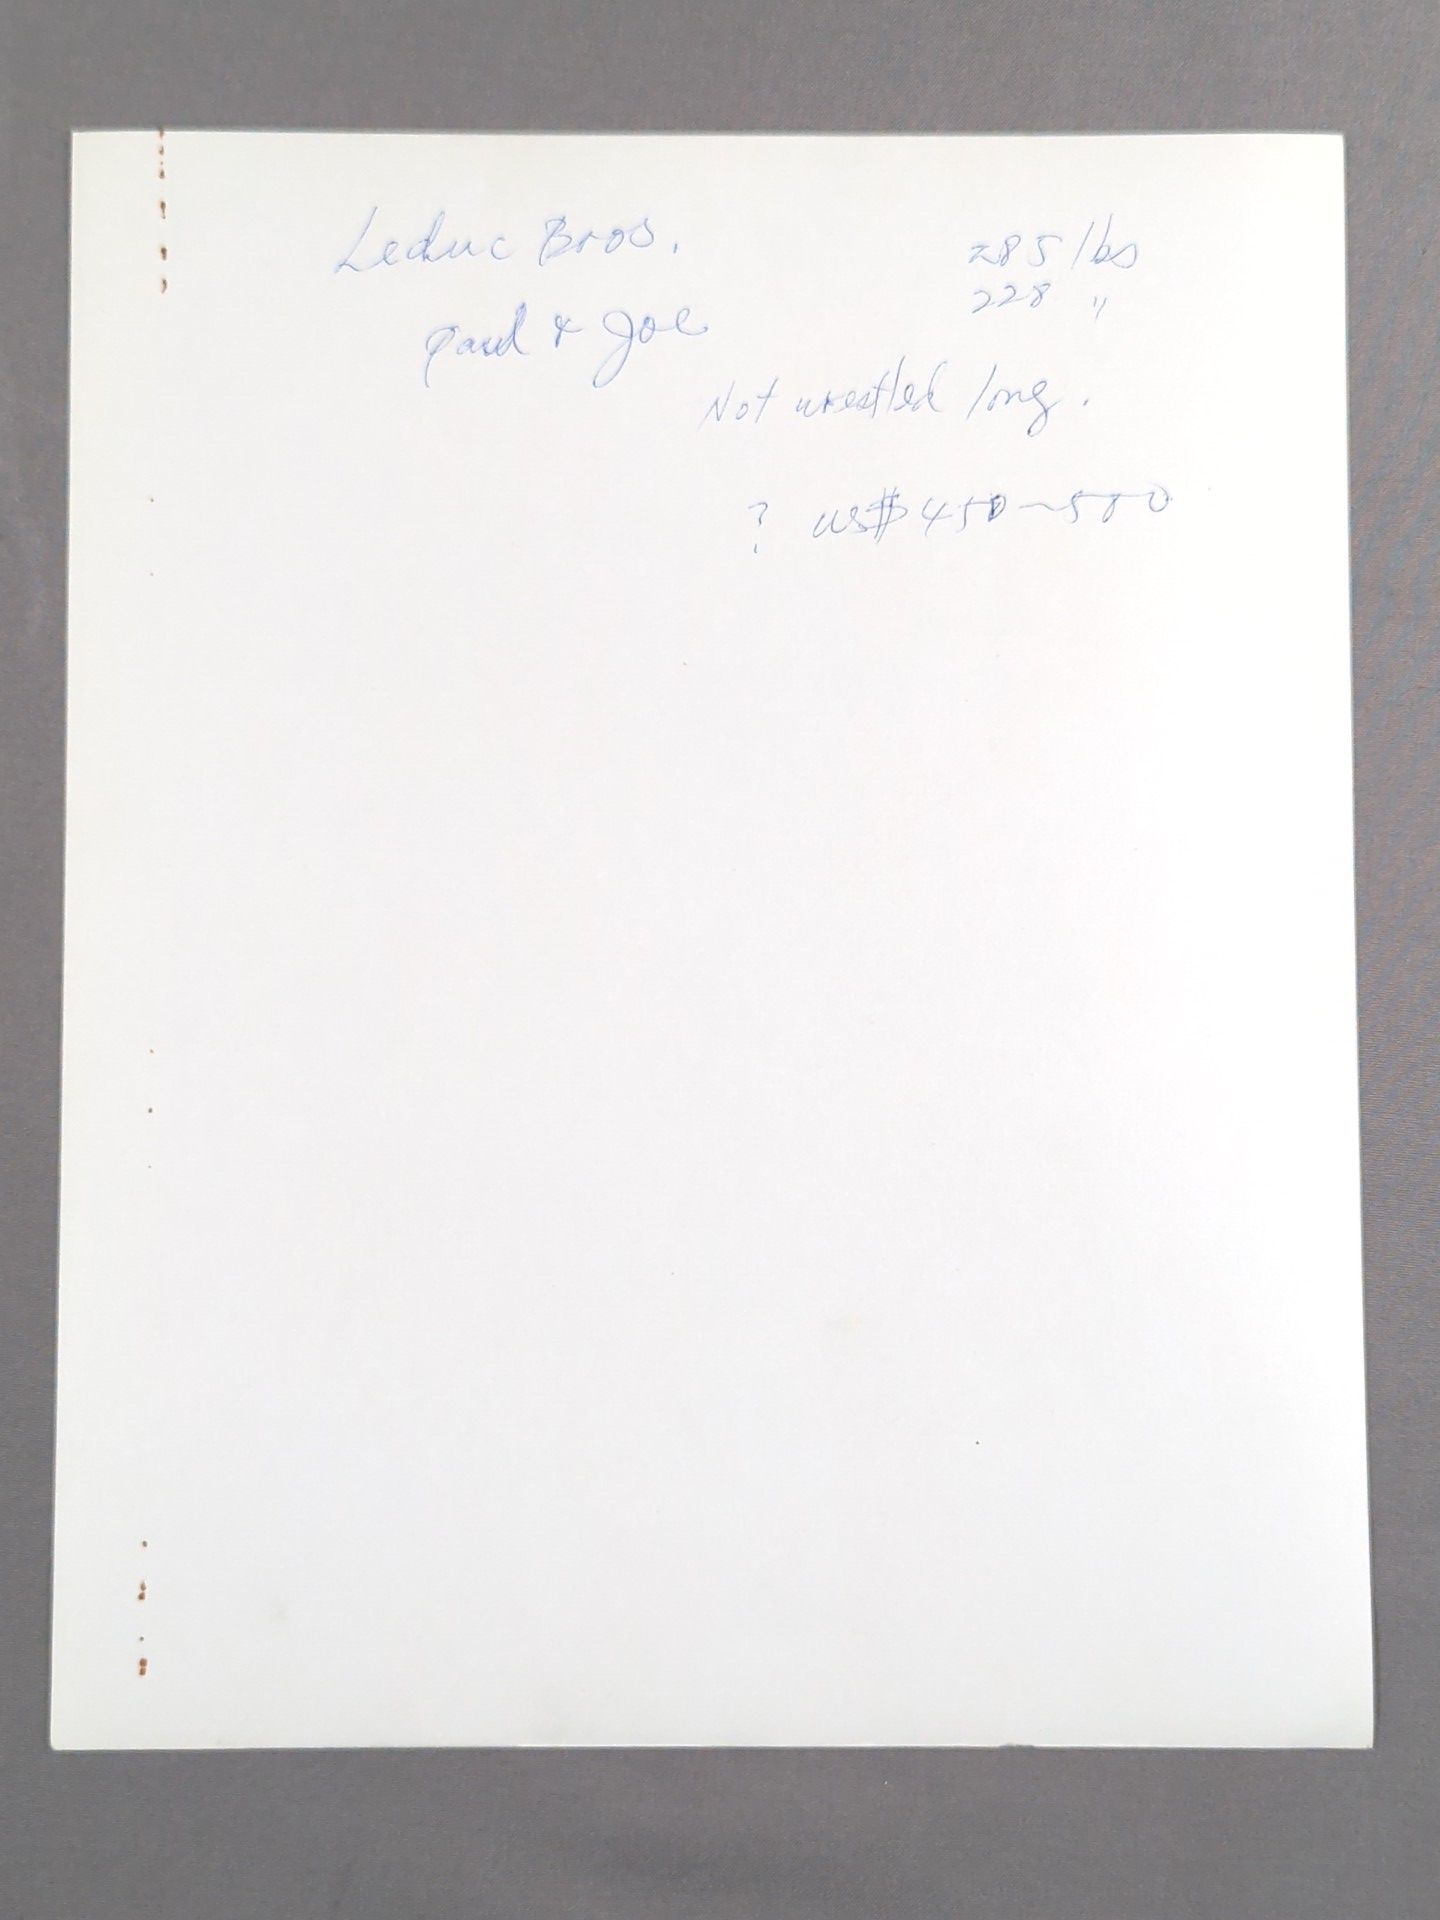 Leduc Bros. 285 lbs
228 "
Paul & Joe
Not wrestled long.
? US$ 450~500